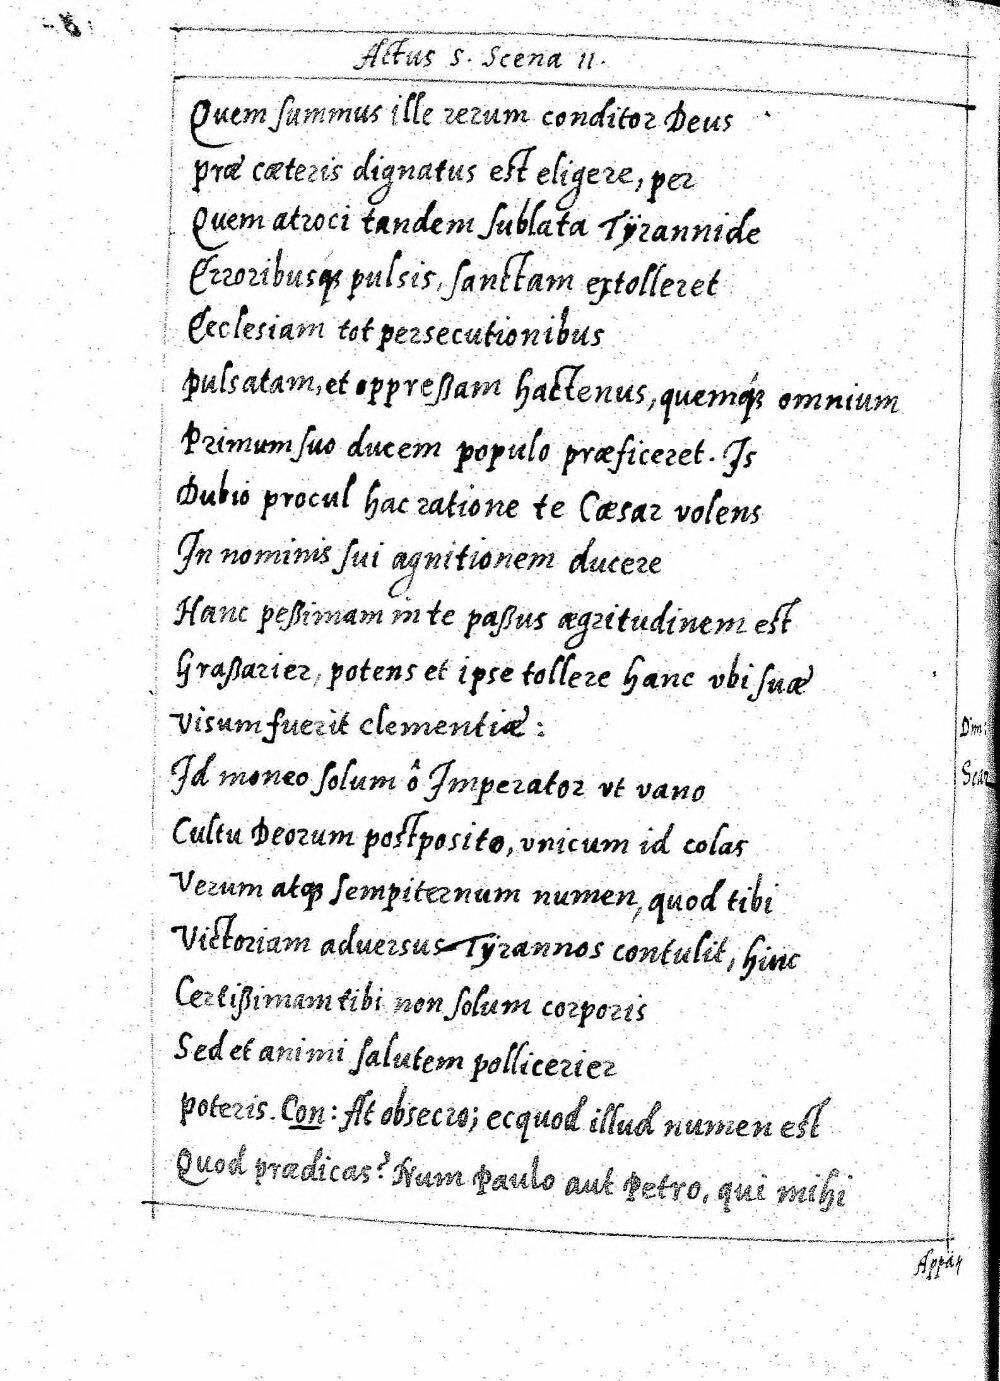 Actus 5. Scena II.
Quem summus ille rerum conditor Deus
præ cæteris dignatus est eligere, per
Quem atroci tandem sublata Tÿrannide
Erroribusq́ pulsis, sanctam extolleret
Ecclesiam tot persecutionibus
pulsatam, et oppreßam hactenus, quemq́ omnium
Primum suo ducem populo præficeret. Is
Dubio procul hac ratione te Cæsar volens
In nominis sui agnitionem ducere
Hanc peßimam in te paßus ægritudinem est
Graßarier, potens et ipse tollere hanc vbi suæ
Visum fuerit clementiæ:
Id moneo solum ô Imperator vt vano
Cultu Deorum postposito, vnicum id colas
Verum atq sempiternum numen, quod tibi
Victoriam adversus Tÿrannos contulit, hinc
Certißimam tibi non solum corporis
Sed et animi salutem pollicerier
poteris. Con: At obsecro; ecquod illud numen est
Quod prædicas? Num Paulo aut Petro, qui mihi